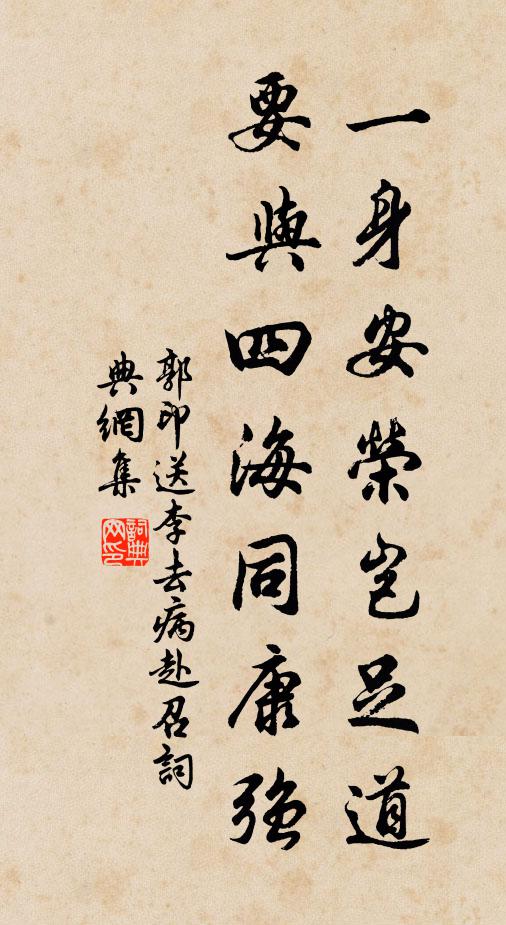 一身安榮豈足道
要與四海同康強
郭印送李去病赴召詞
典網集
詞典
网印